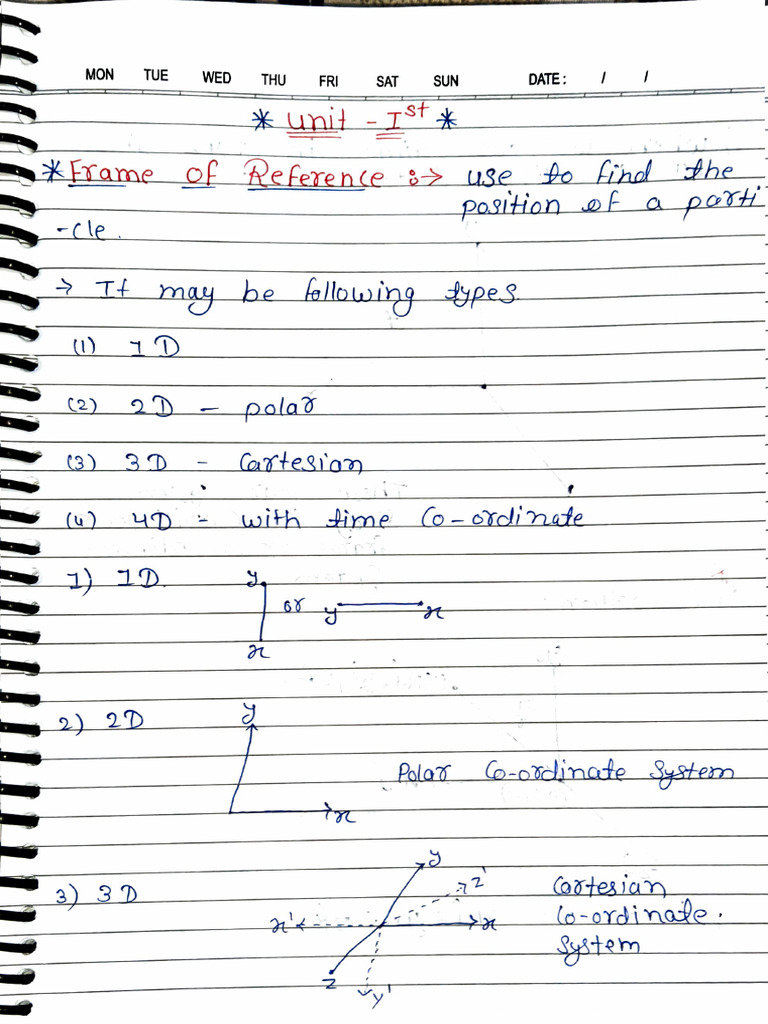 MON TUE WED THU FRI SAT SUN DATE: / /
* Unit - Ist *
* Frame of Reference :→ use to find the
position of a parti
-cle.
→ It may be following types.
(1) 1D
(2) 2D - polar
(3) 3D - Cartesian
(4) 4D - with time Co-ordinate
1) 1D. y or y x
x
2) 2D y
Polar Co-ordinate System
x
y
3) 3D z' Cartesian
x' x Co-ordinate.
System
z y'